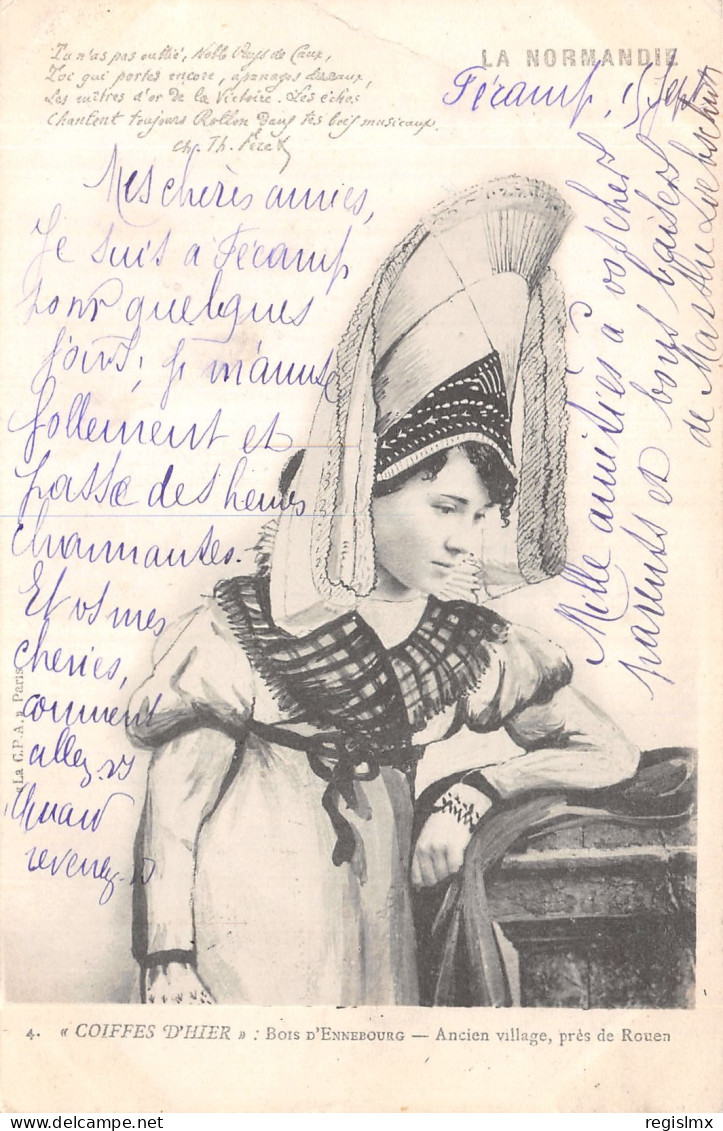 Tu n'as pas oublié, Noble Pays de Caux,
Toi qui portes encore, apanages
Les mitres d'or de la Victoire. Les échos
Chantent toujours Rollon dans tes bois musicaux.
Ch. Th. Féret
LA NORMANDIE
Fécamp, 15 Sept
Mes chères amies,
Je suis à Fécamp
pour quelques
jours, je m'amuse
follement et
passe des heures
charmantes.
Et vs mes
chéries,
comment
allez vs
Quand
revenez vs
Mille amitiés à vos chers
parents et bons baisers
de Marthe
« La C.P.A. » Paris
4. « COIFFES D'HIER » : BOIS D'ENNEBOURG — Ancien village, près de Rouen
www.delcampe.net
regislmx